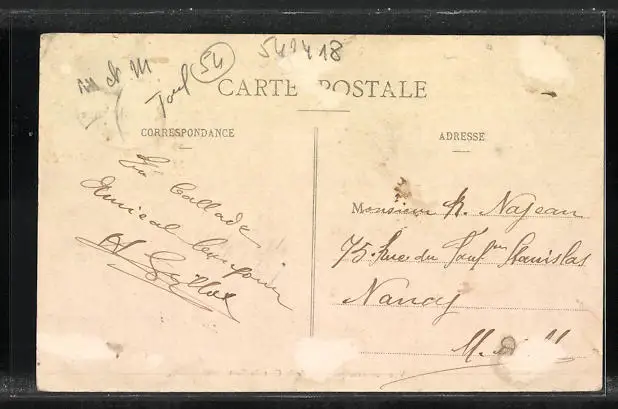 M et M
Toul 54
541418
CARTE POSTALE
CORRESPONDANCE
ADRESSE
En Ballade
Amical bonjour
Monsieur R. Najean
75. Rue du Faubg Stanislas
Nancy
M. et M